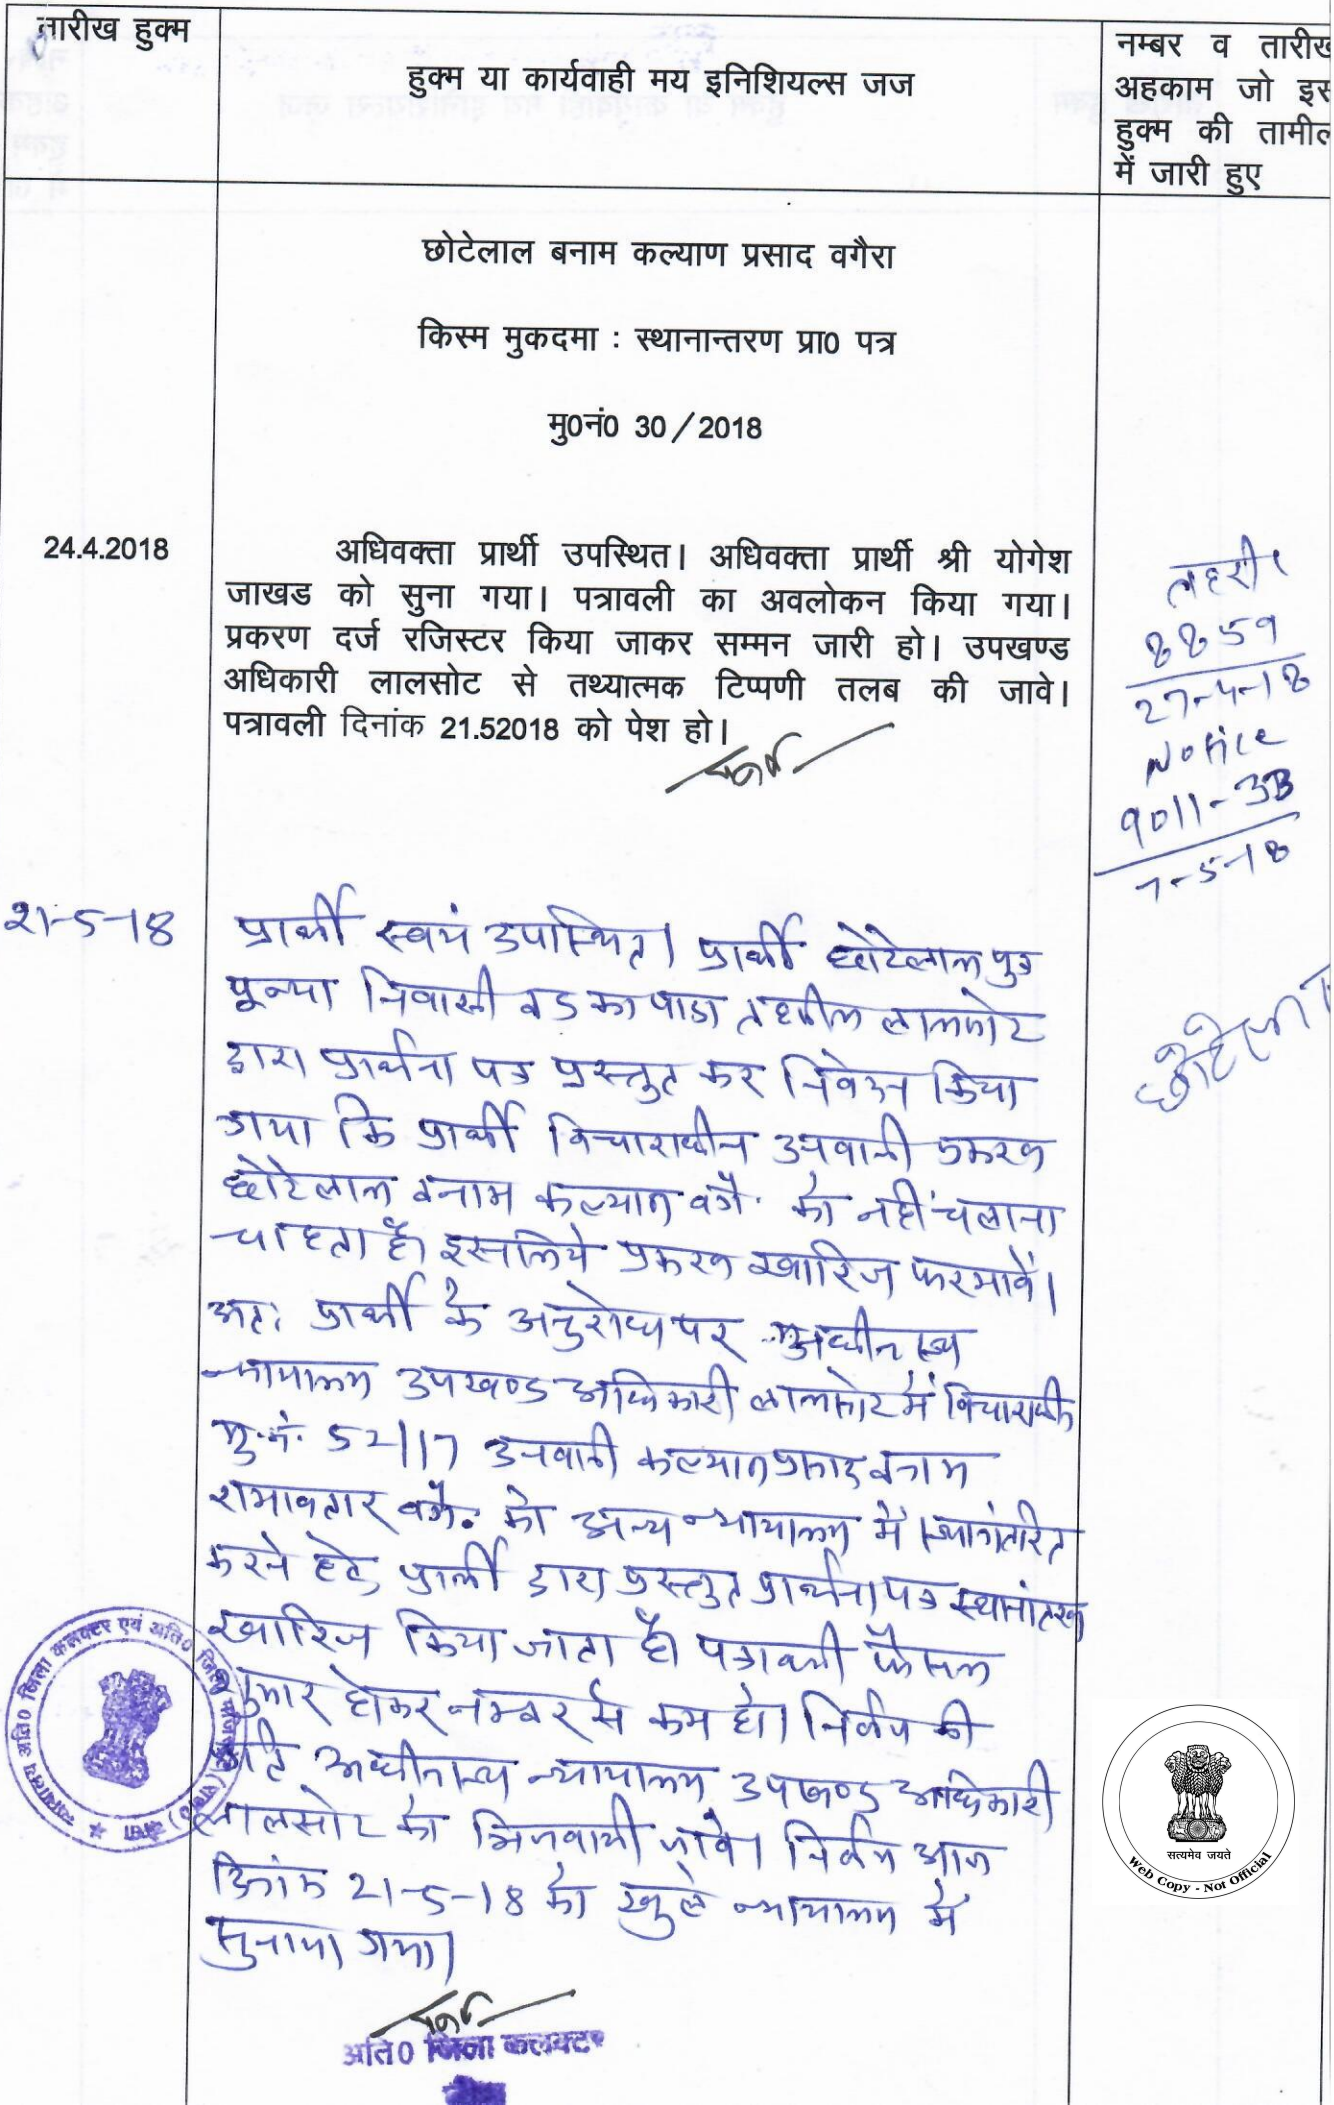 तारीख हुक्म
हुक्म या कार्यवाही मय इनिशियल्स जज
नम्बर व तारीख
अहकाम जो इस
हुक्म की तामील
में जारी हुए
छोटेलाल बनाम कल्याण प्रसाद वगैरा
किस्म मुकदमा : स्थानान्तरण प्रा0 पत्र
मु0नं0 30/2018
24.4.2018
अधिवक्ता प्रार्थी उपस्थित। अधिवक्ता प्रार्थी श्री योगेश
जाखड को सुना गया। पत्रावली का अवलोकन किया गया।
प्रकरण दर्ज रजिस्टर किया जाकर सम्मन जारी हो। उपखण्ड
अधिकारी लालसोट से तथ्यात्मक टिप्पणी तलब की जावे।
पत्रावली दिनांक 21.52018 को पेश हो।
8859
27-4-18
Notice
9011-33
7-5-18
21-5-18
प्रार्थी स्वयं उपस्थित। प्रार्थी छोटेलाल पुत्र
पून्या निवासी बड का पाडा तहसील लालसोट
द्वारा प्रार्थना पत्र प्रस्तुत कर निवेदन किया
गया कि प्रार्थी विचाराधीन उनवानी प्रकरण
छोटेलाल बनाम कल्याण वगै. को नहीं चलाना
चाहता है। इसलिये प्रकरण खारिज फरमावें।
अतः प्रार्थी के अनुरोध पर अधीनस्थ
न्यायालय उपखण्ड अधिकारी लालसोट में विचाराधीन
मु.नं. 52/17 उनवानी कल्याण प्रसाद बनाम
रामावतार वगै. को अन्य न्यायालय में स्थानांतरित
करने हेतु प्रार्थी द्वारा प्रस्तुत प्रार्थना पत्र स्थानांतरण
खारिज किया जाता है। पत्रावली फैसल
शुमार होकर नम्बर से कम हो। निर्णय की
प्रति अधीनस्थ न्यायालय उपखण्ड अधिकारी
लालसोट को भिजवायी जावे। निर्णय आज
दिनांक 21-5-18 को खुले न्यायालय में
सुनाया गया।
छोटेलाल
अति0 जिला कलक्टर
न्यायालय अति0 जिला कलक्टर एवं अति0 जिला मजिस्ट्रेट दौसा (राज0)
सत्यमेव जयते
Web Copy - Not Official